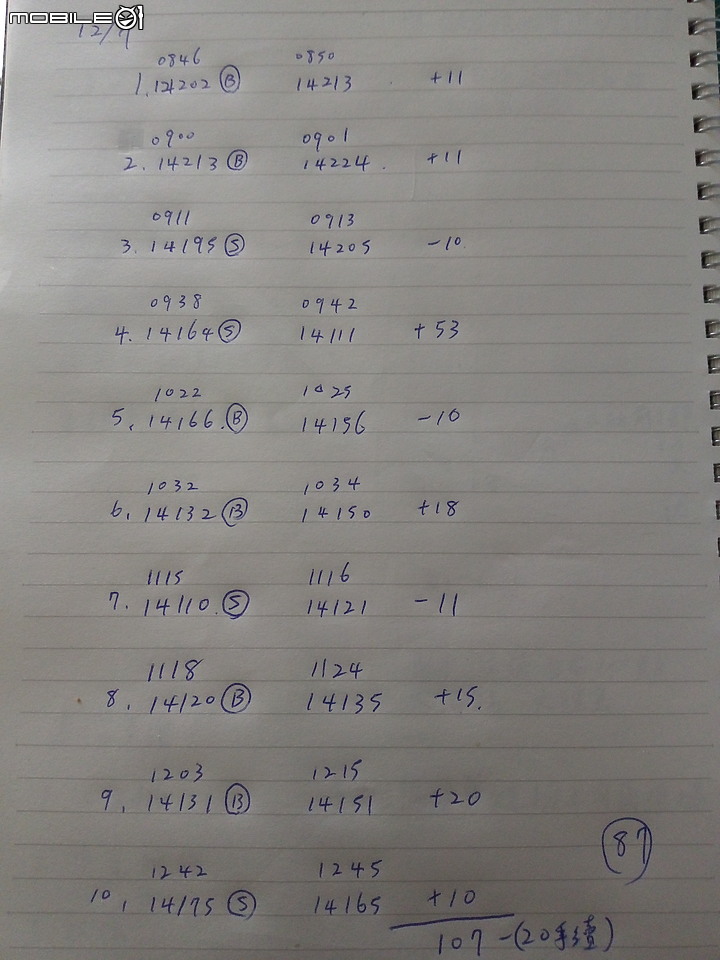 MOBILE01
12/7
0846 0850
1. 14202 Ⓑ 14213 +11
0900 0901
2. 14213 Ⓑ 14224. +11
0911 0913
3. 14195 Ⓢ 14205 -10.
0938 0942
4. 14164 Ⓢ 14111 +53
1022 1025
5. 14166. Ⓑ 14156 -10
1032 1034
6. 14132 Ⓑ 14150 +18
1115 1116
7. 14110. Ⓢ 14121 -11
1118 1124
8. 14120 Ⓑ 14135 +15.
1203 1215
9. 14131 Ⓑ 14151 +20
87
1242 1245
10. 14175 Ⓢ 14165 +10
107 -(20手續)